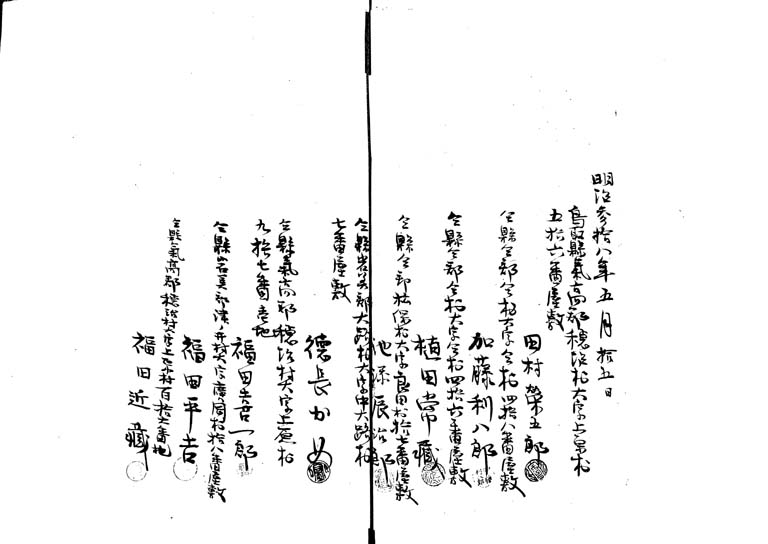 明治参拾八年五月拾五日
鳥取縣氣高郡穂波村大字上原村
五拾六番屋敷
田村 五郎
仝縣仝郡仝村大字仝村四拾八番屋敷
加藤利八郎
仝縣仝郡仝村大字仝村四拾六番屋敷
植田常藏
仝縣仝郡松保村大字良田村拾七番屋敷
池添辰治郎
仝縣岩美郡大路村大字中大路村
七番屋敷
德長かめ
仝縣氣高郡穂波村大字上原村
九拾七番宅地
福田吉一郎
仝縣岩美郡津ノ井村大字廣岡村拾八番屋敷
福田平吉
仝縣氣高郡穂波村大字上原村百拾七番地
福田近藏